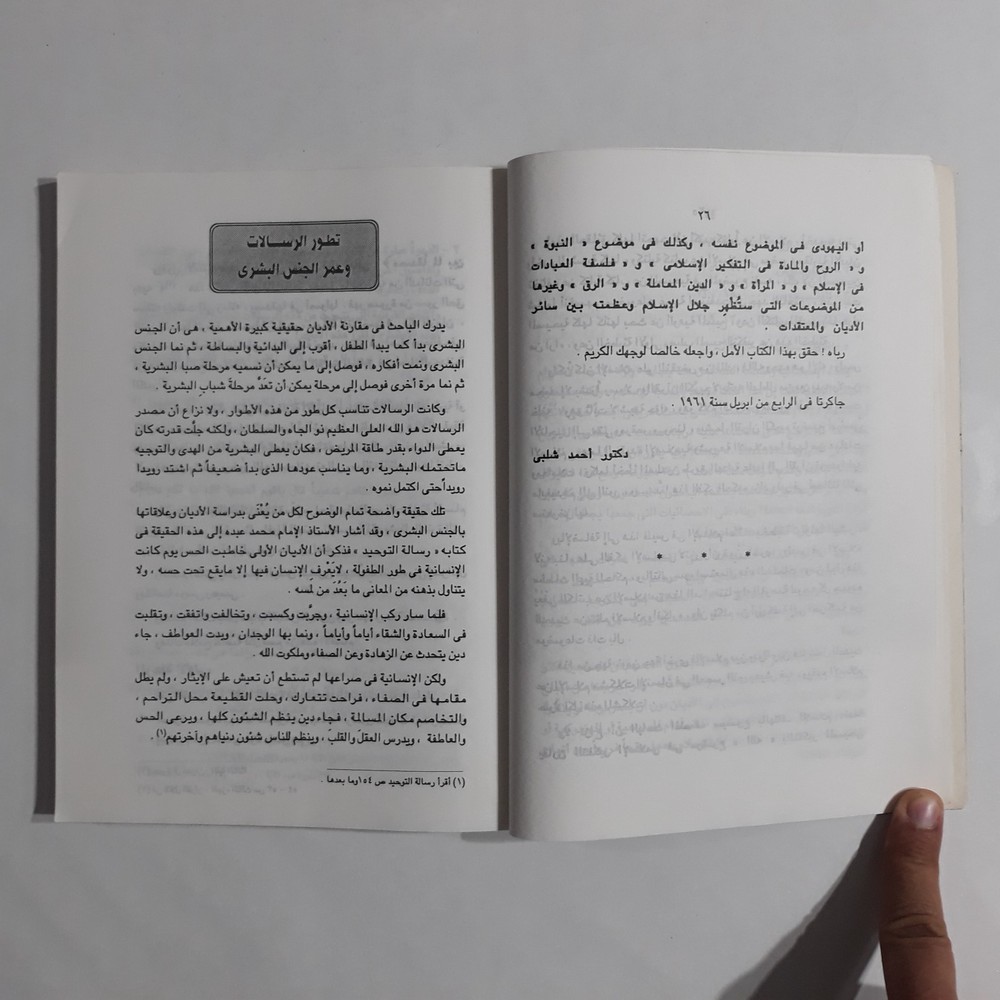 ٢٦
أو اليهودى فى الموضوع نفسه ، وكذلك فى موضوع « النبوة »
و « الروح والمادة فى التفكير الإسلامى » و « فلسفة العبادات
فى الإسلام » و « المرأة » و « الدين المعاملة » و « الرق » وغيرها
من الموضوعات التى ستُظْهِر جلال الإسلام وعظمته بين سائر
الأديان والمعتقدات .
رباه ! حقق بهذا الكتاب الأمل ، واجعله خالصا لوجهك الكريم .
جاكرتا فى الرابع من ابريل سنة ١٩٦١ .
دكتور أحمد شلبى
* * *
تطور الرسالات
وعمر الجنس البشرى
يدرك الباحث فى مقارنة الأديان حقيقية كبيرة الأهمية ، هى أن الجنس
البشرى بدأ كما يبدأ الطفل ، أقرب إلى البدائية والبساطة ، ثم نما الجنس
البشرى ونمت أفكاره ، فوصل إلى ما يمكن أن نسميه مرحلة صبا البشرية ،
ثم نما مرة أخرى فوصل إلى مرحلة يمكن أن تعَدَّ مرحلةَ شبابِ البشرية .
وكانت الرسالات تتاسب كل طور من هذه الأطوار ، ولا نزاع أن مصدر
الرسالات هو الله العلى العظيم نو الجاه والسلطان ، ولكنه جلَّت قدرته كان
يعطى الدواء بقدر طاقة المريض ، فكان يعطى البشرية من الهدى والتوجيه
ماتحتمله البشرية ، وما يناسب عودها الذى بدأ ضعيفاً ثم اشتد رويدا
رويداًحتى اكتمل نموه .
تلك حقيقة واضحة تمام الوضوح لكل من يُعْنَى بدراسة الأديان وعلاقاتها
بالجنس البشرى ، وقد أشار الأستاذ الإمام محمد عبده إلى هذه الحقيقة فى
كتابه « رسالة التوحيد » فذكر أن الأديان الأولى خاطبت الحس يوم كانت
الإنسانية فى طور الطفولة ، لايَعْرفِ الإنسان فيها إلا مايقع تحت حسه ، ولا
يتناول بذهنه من المعانى ما بَعُدَ من لمسه .
فلما سار ركب الإنسانية ، وجرَّبت وكسبت ، وتخالفت واتفقت ، وتقلبت
فى السعادة والشقاء أياماً وأياماً ، ونما بها الوجدان ، وبدت العواطف ، جاء
دين يتحدث عن الزهادة وعن الصفاء وملكوت الله .
ولكن الإنسانية فى صراعها لم تستطع أن تعيش على الإيثار ، ولم يطل
مقامها فى الصفاء ، فراحت تتعارك ، وحلت القطيعة محل التراحم ،
والتخاصم مكان المسالمة ، فجاء دين ينظم الشئون كلها ، ويرعى الحس
والعاطفة ، ويدرس العقلَ والقلبَ ، وينظم للناس شئون دنياهم وآخرتهم(١) .
(١) أقرأ رسالة التوحيد ص ١٥٤وما بعدها .